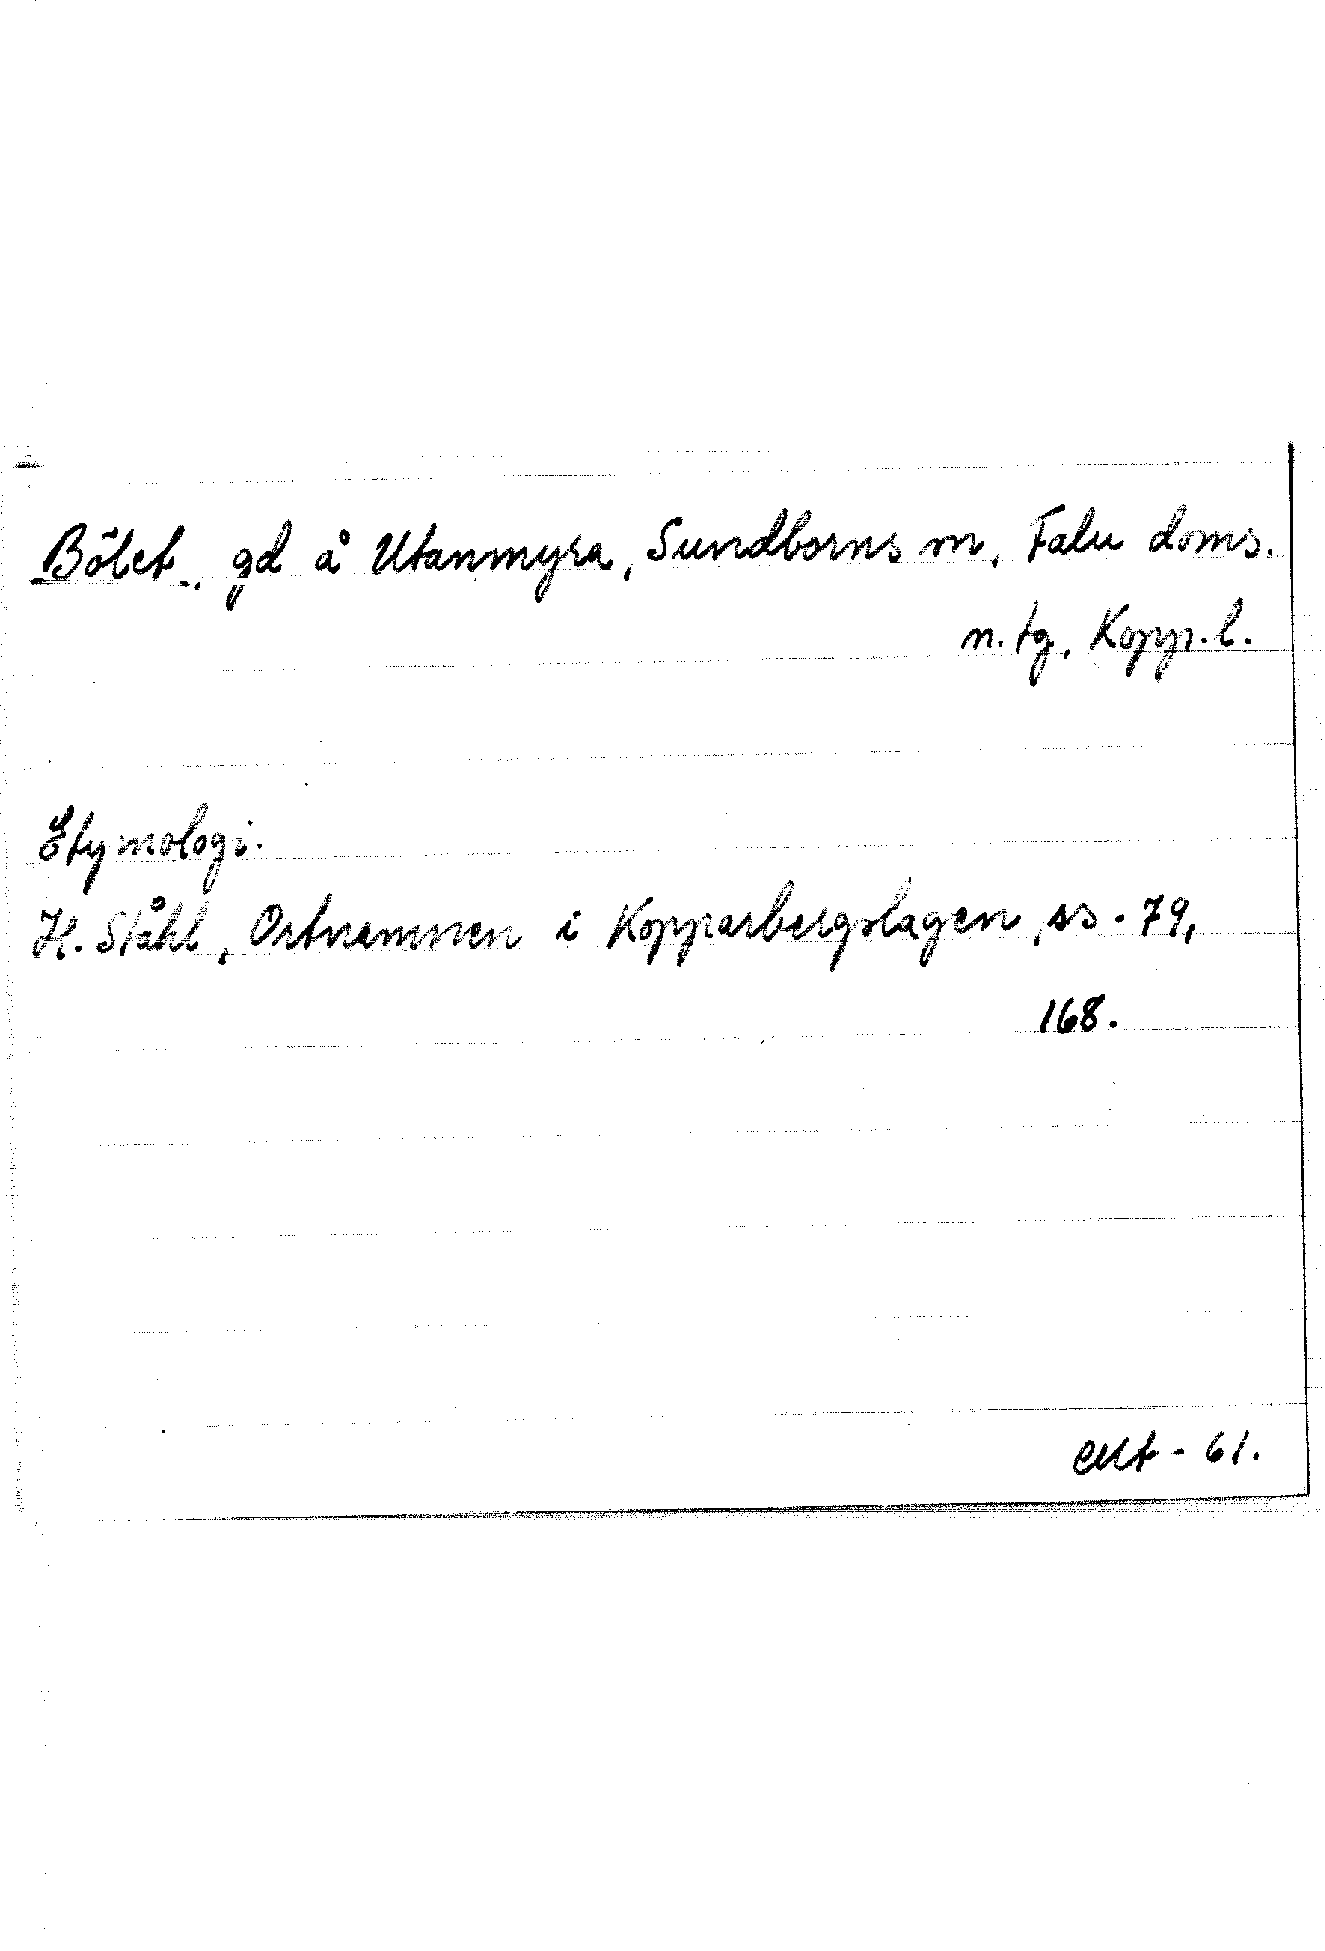 Bölet, gd å Utanmyra, Sundborns sn, Falu doms.
n. tg, Kopp. l.
Etymologi.
H. Ståhl, Ortnamnen i Kopparbergslagen, ss. 79,
168.
- 61.